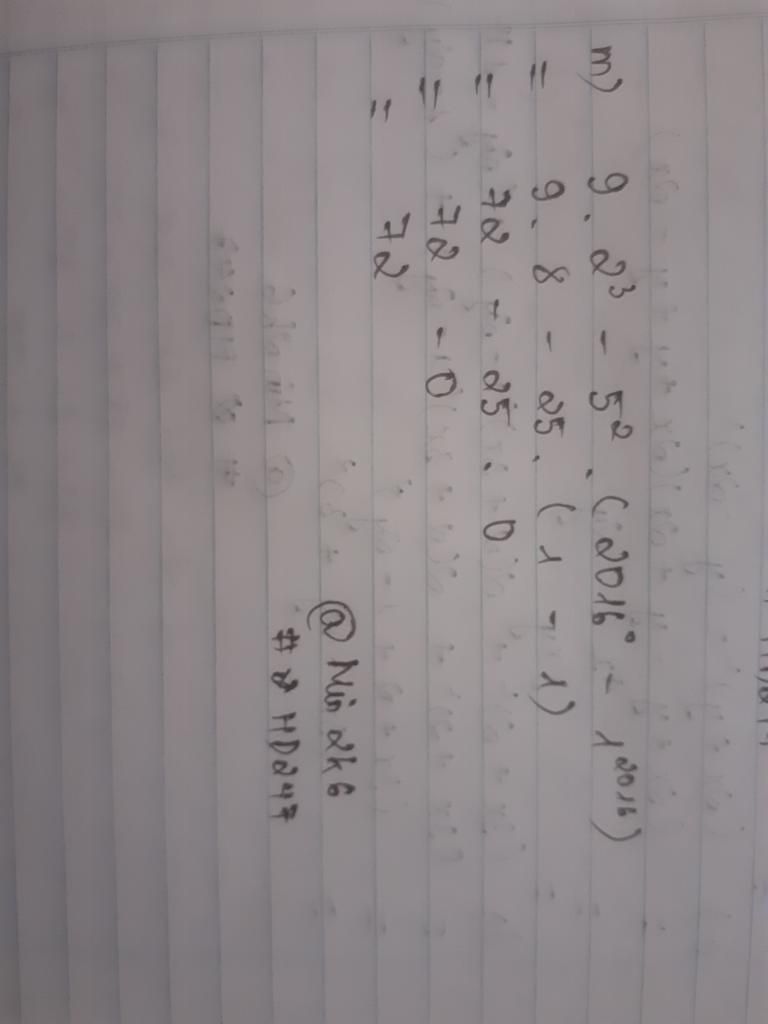 m) 9 . 2³ - 5² . (2016⁰ - 1²⁰¹⁶)
= 9 . 8 - 25 . (1 - 1)
= 72 - 25 . 0
= 72 - 0
= 72
@ Min 2k6
# HD247